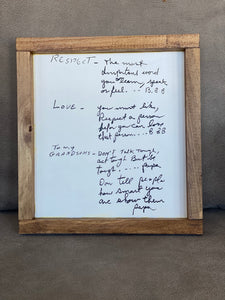 RESPECT - The most
important word
you learn, speak
or feel... B.2B
LOVE - you must like,
Respect a person
before you can love
that person...B 2B
To my
GRANDSONS - DON'T Talk Tough,
act tough But be
tough..... Papa
Don tell people
how smart you
are show them
Papa